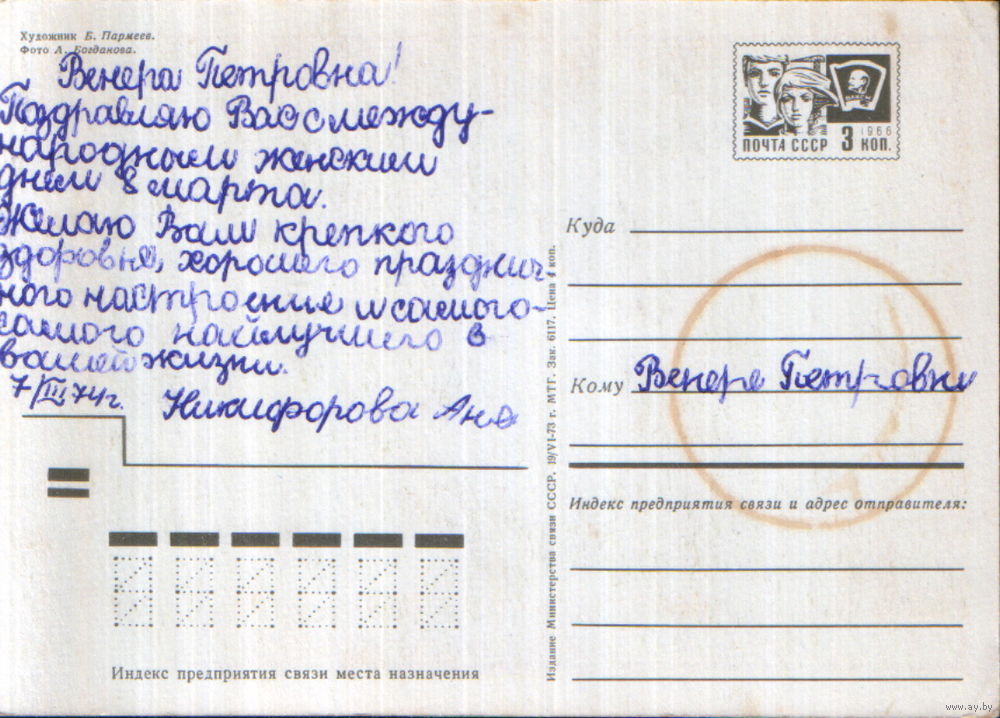 Художник Б. Пармеев.
Фото А. Богданова.
Венера Петровна!
Поздравляю Вас с между-
народным женским
днём 8 марта.
Желаю Вам крепкого
здоровья, хорошего празднич-
ного настроения и самого-
самого наилучшего в
вашей жизни.
7/III 74г.
Никифорова Аня
ПОЧТА СССР 3 КОП.
1966
Куда
Кому Венере Петровне
Индекс предприятия связи и адрес отправителя:
Издание Министерства связи СССР. 19/VI-73 г. МТГ. Зак. 6117. Цена 4 коп.
Индекс предприятия связи места назначения
www.ay.by